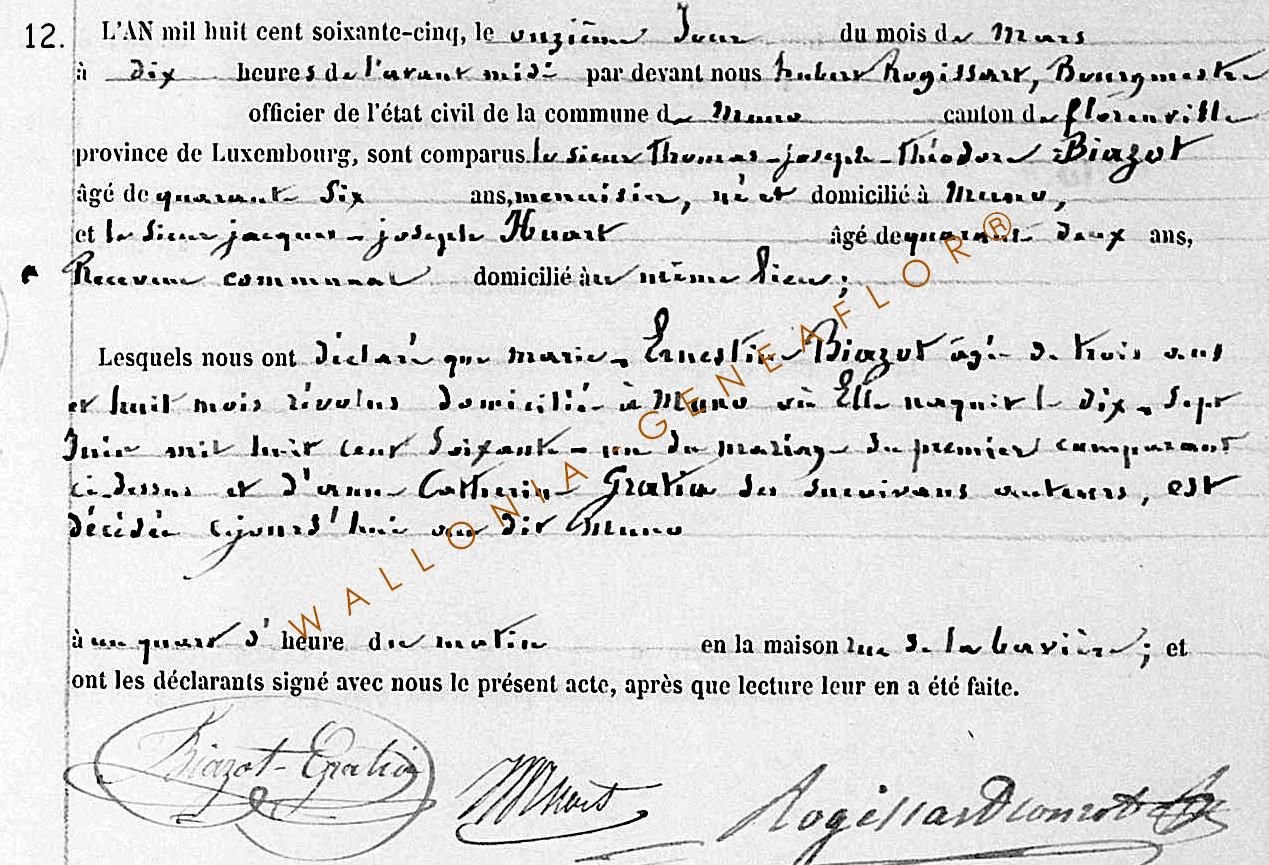 12. L'AN mil huit cent soixante-cinq, le onzième Jour du mois de Mars
à dix heures de l'avant midi par devant nous hubert Rogissart, Bourgmestre
officier de l'état civil de la commune de Muno canton de florenville
province de Luxembourg, sont comparus le sieur Thomas-joseph-Théodore Biazot
âgé de quarante Six ans, menuisier, né et domicilié à Muno,
et le Sieur jacques-joseph Huart âgé de quarante deux ans,
Receveur communal domicilié au même lieu;
Lesquels nous ont déclaré que marie-Ernestine Biazot âgée de trois ans
et huit mois révolus domiciliée à Muno où Elle naquit le dix-Sept
Juin mil huit cent Soixante-un du mariage du premier comparant
ci-dessus et d'anne Catherine Gratia ses survivans auteurs, est
décédée cejourd'hui au dit Muno
à un quart d'heure du matin en la maison rue de la ; et
ont les déclarants signé avec nous le présent acte, après que lecture leur en a été faite.
Biazot-Gratia Huart Rogissart
WALLONIA GENEAFLOR®